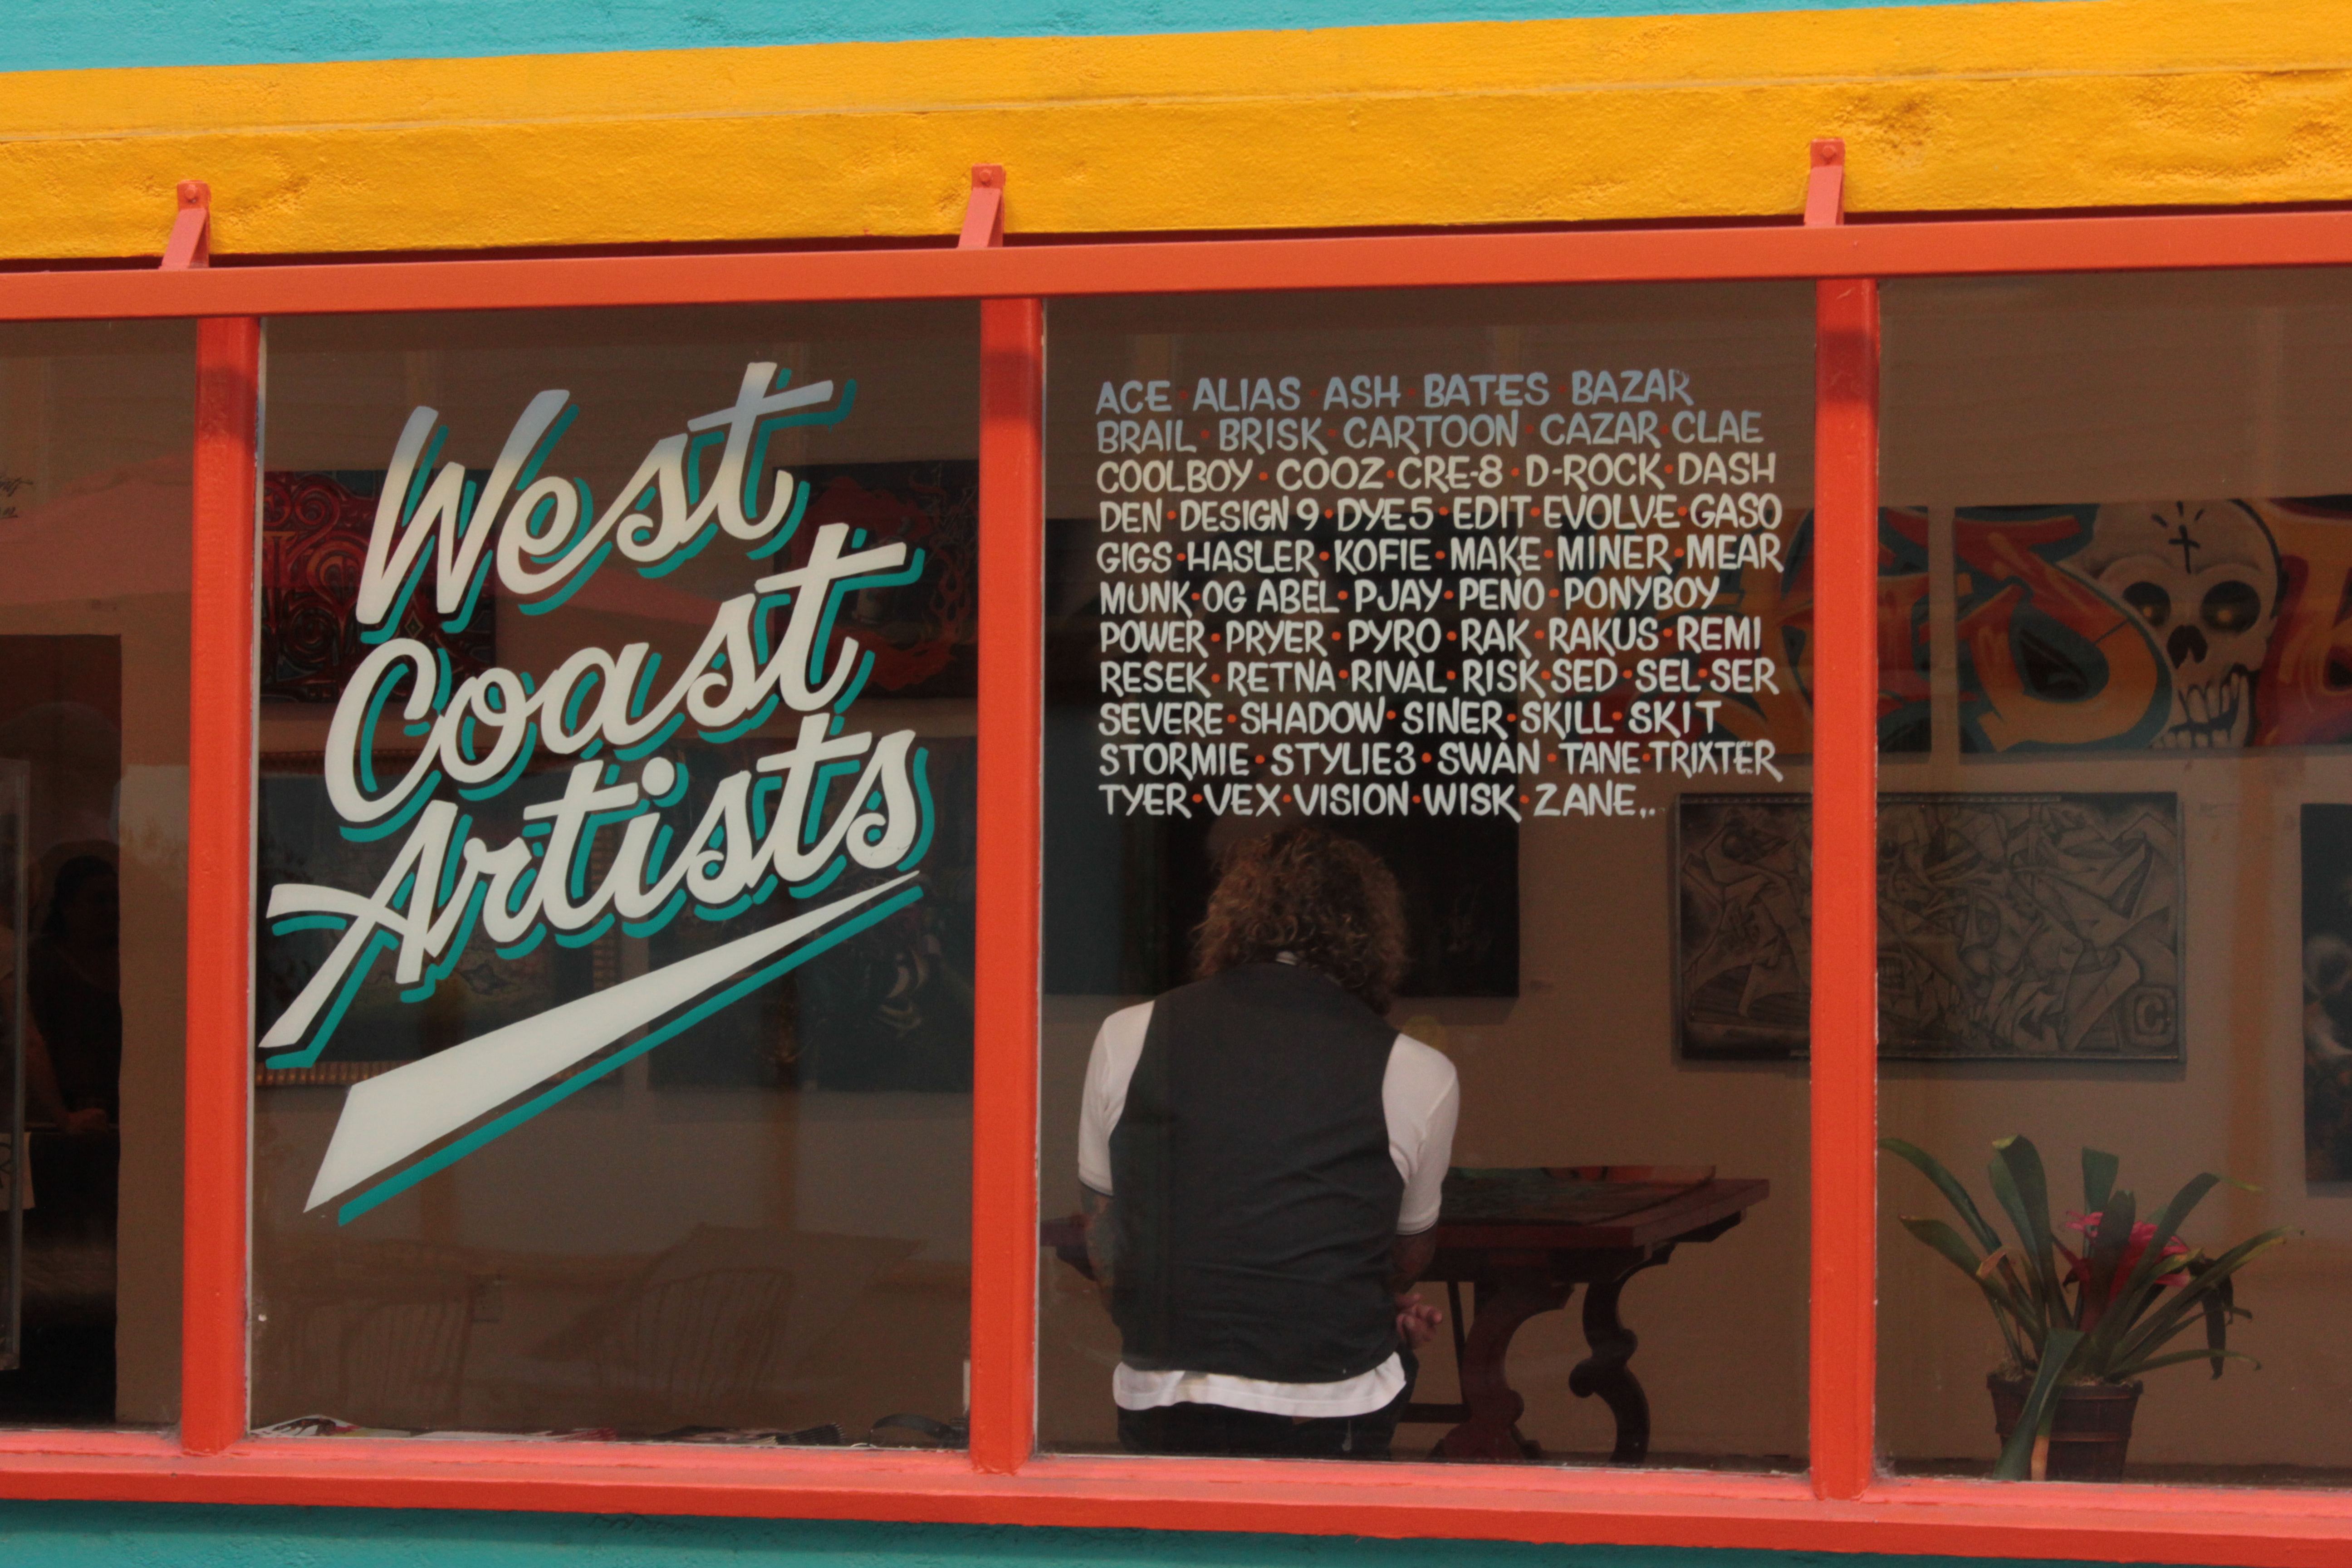 West
Coast
Artists
ACE · ALIAS · ASH · BATES · BAZAR
BRAIL · BRISK · CARTOON · CAZAR · CLAE
COOLBOY · COOZ · CRE-8 · D-ROCK · DASH
DEN · DESIGN 9 · DYE5 · EDIT · EVOLVE · GASO
GIGS · HASLER · KOFIE · MAKE · MINER · MEAR
MUNK · OG ABEL · PJAY · PENO · PONYBOY
POWER · PRYER · PYRO · RAK · RAKUS · REMI
RESEK · RETNA · RIVAL · RISK · SED · SEL · SER
SEVERE · SHADOW · SINER · SKILL · SKIT
STORMIE · STYLIE3 · SWAN · TANE · TRIXTER
TYER · VEX · VISION · WISK · ZANE,.